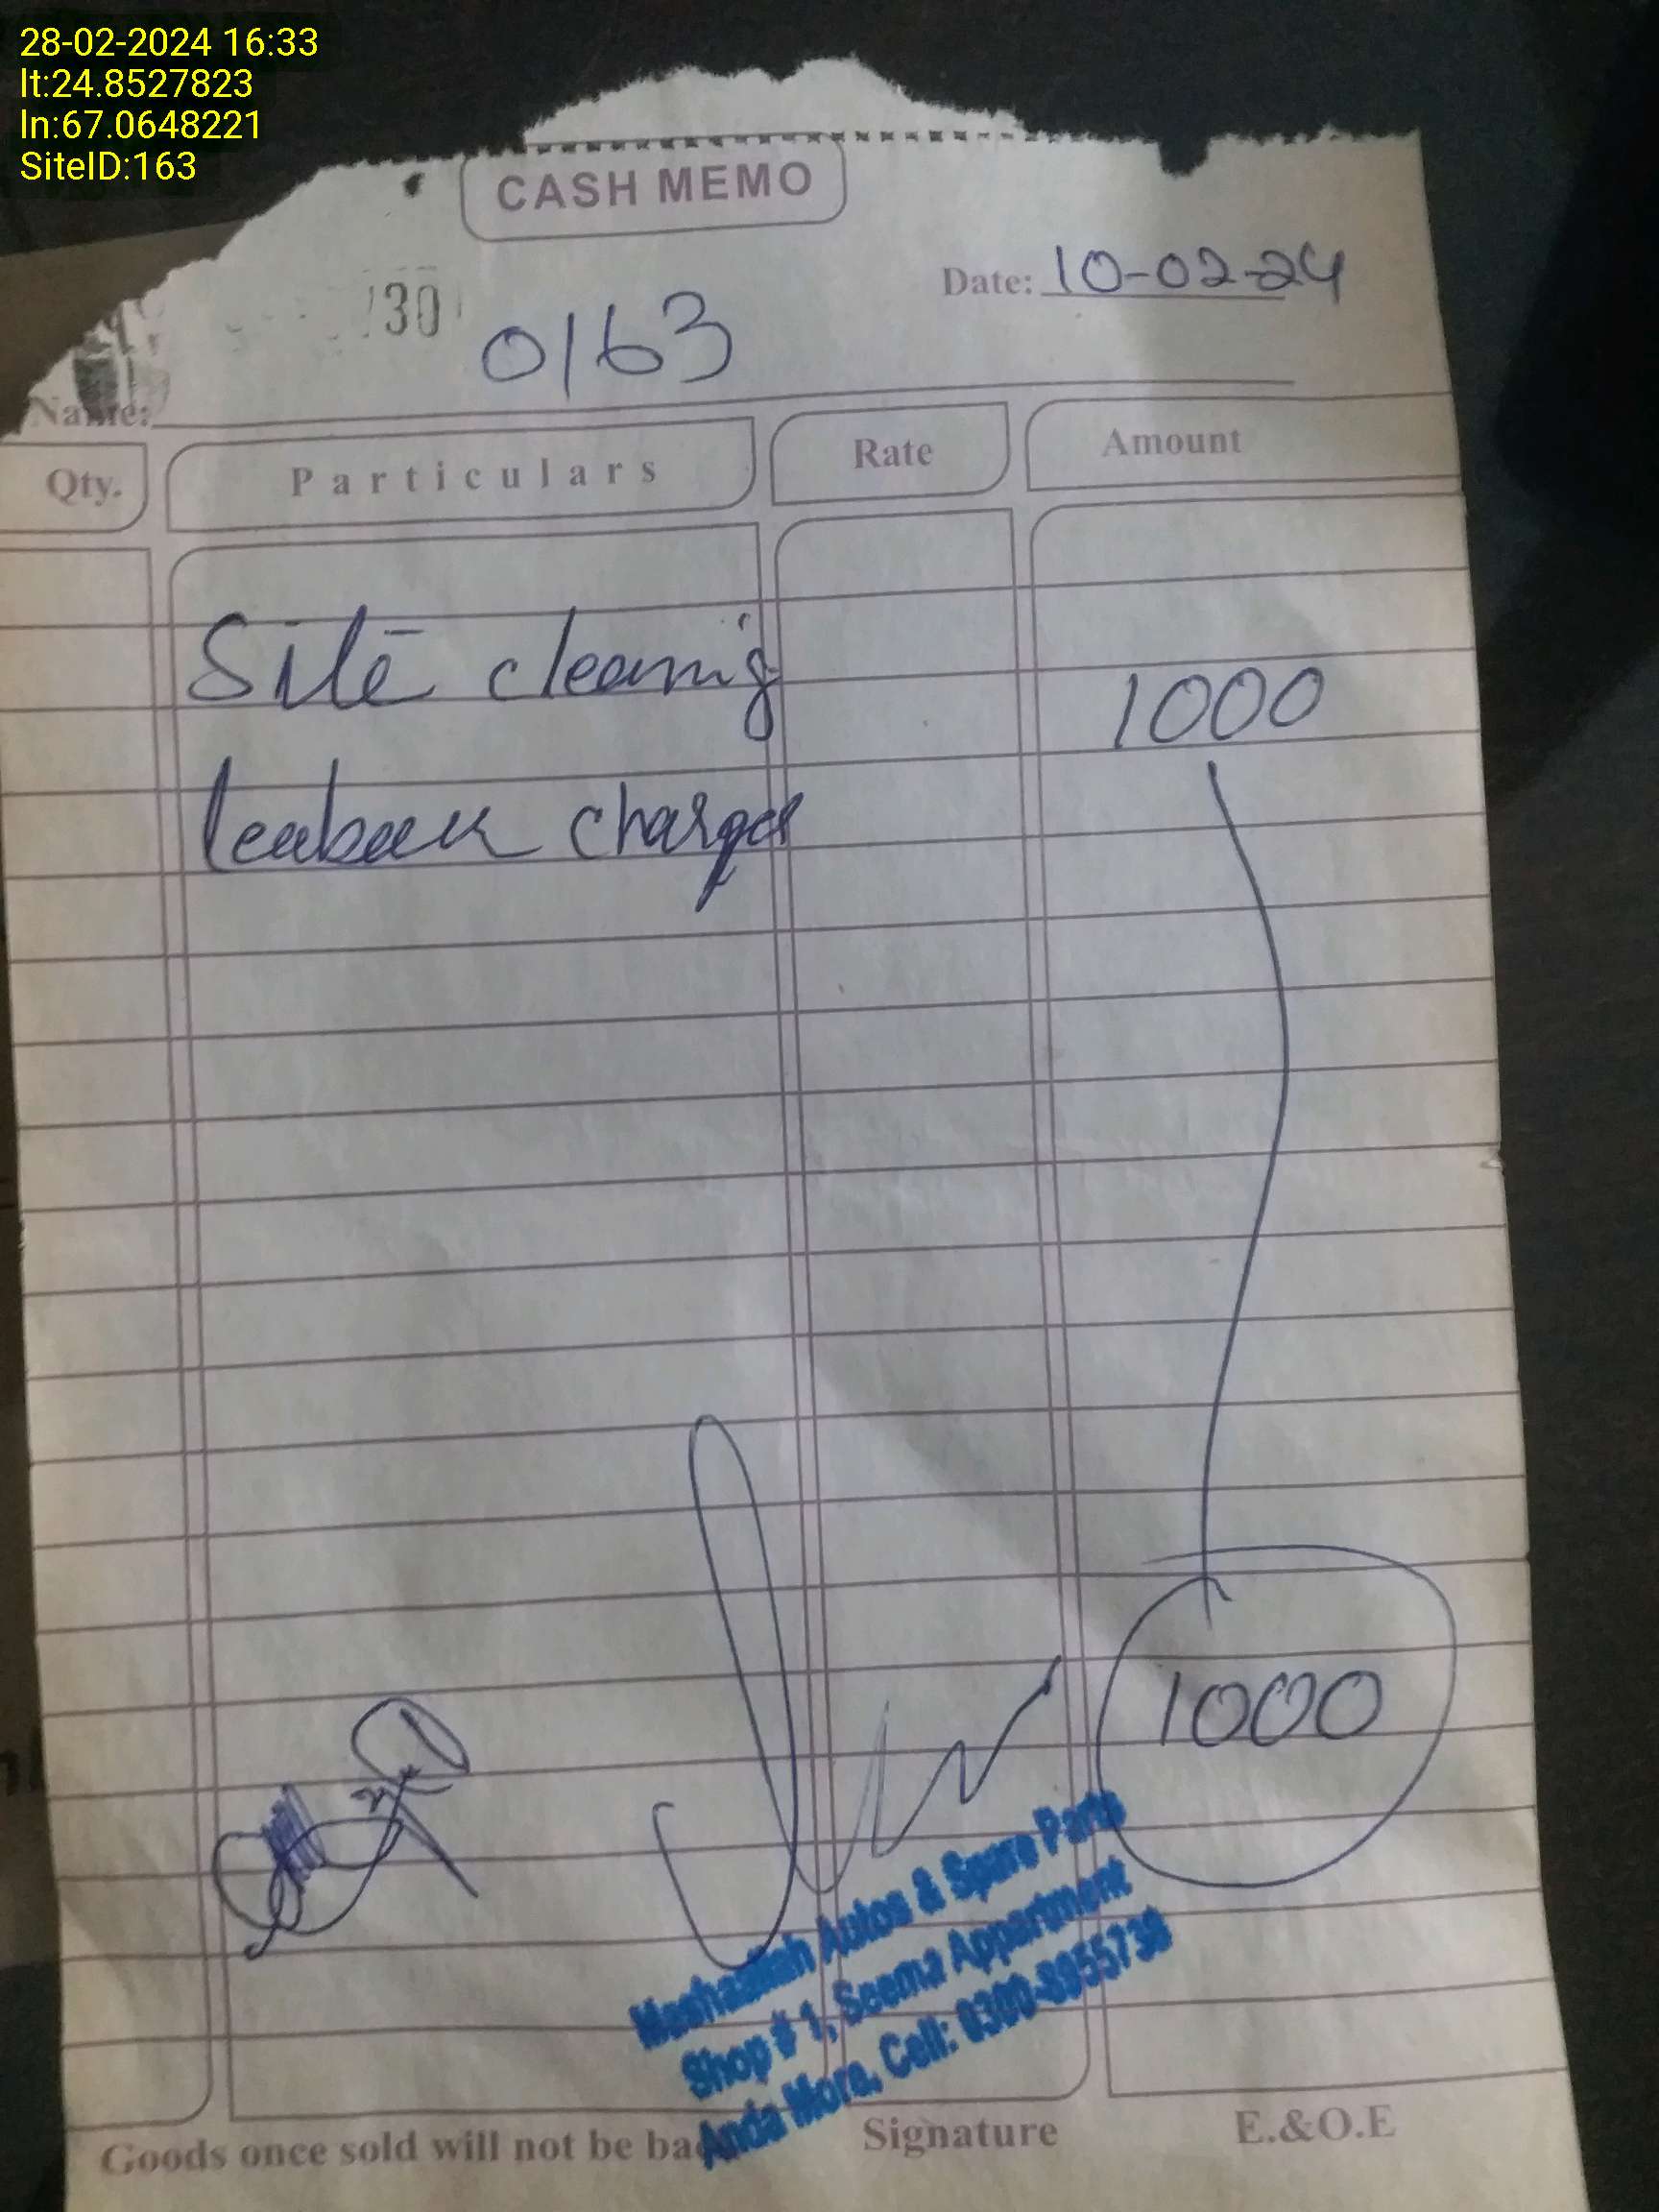 28-02-2024 16:33
lt:24.8527823
ln:67.0648221
SiteID:163
CASH MEMO
Date: 10-02-24
30
0163
Name:
Qty. Particulars Rate Amount
Site cleaning 1000
charges
1000
Mashaallah Autos & Spare Parts
Shop # 1, Seema Appartment
Anda Mora, Cell: 0300-8955738
Goods once sold will not be Signature E.&O.E